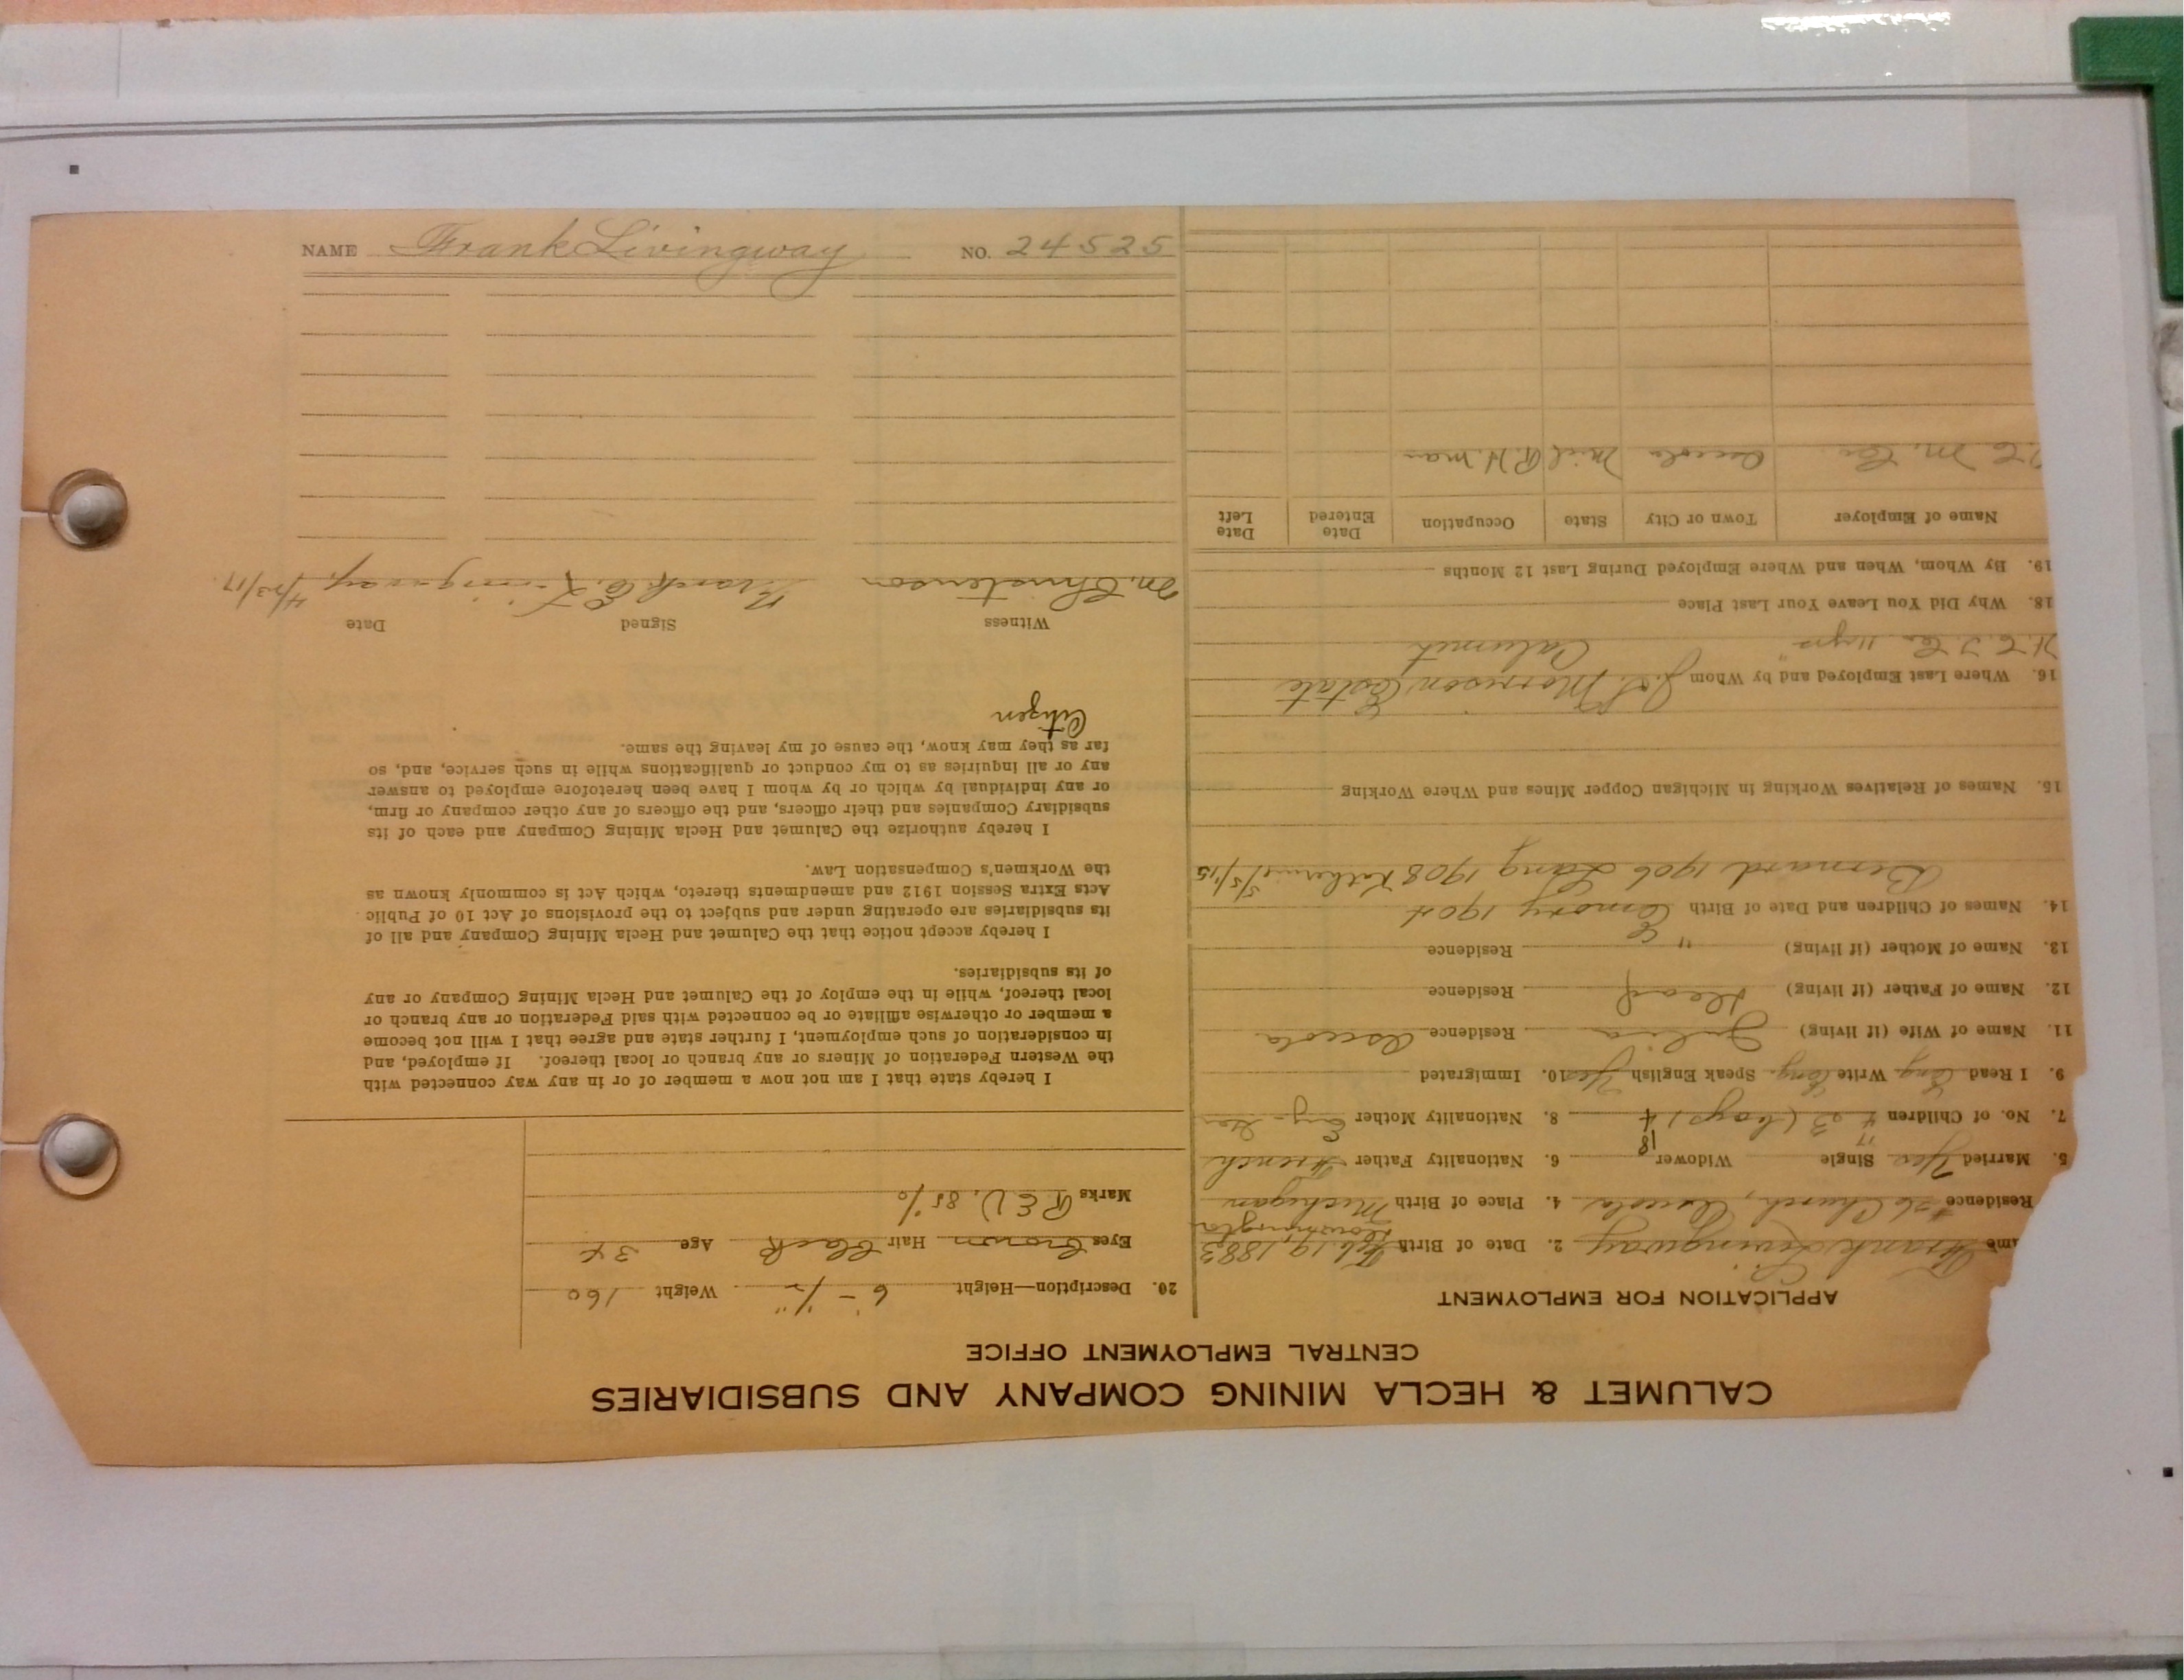 CALUMET & HECLA MINING COMPANY AND SUBSIDIARIES
CENTRAL EMPLOYMENT OFFICE
APPLICATION FOR EMPLOYMENT
ame Frank Livingway 2. Date of Birth Feb. 19, 1883
Residence #36 Church, Osceola 4. Place of Birth Michigan
5. Married Yes Single Widower 18 6. Nationality Father French
7. No. of Children 4 3 (boys) 4 8. Nationality Mother Eng -
9. I Read Eng Write Eng. Speak English Yes 10. Immigrated
11. Name of Wife (if living) Julia Residence Osceola
12. Name of Father (if living) Dead Residence
13. Name of Mother (if living) " Residence
14. Names of Children and Date of Birth Emory 1904
Bernard 1906 Lang 1908 Katherine 5/5/15
15. Names of Relatives Working in Michigan Copper Mines and Where Working
16. Where Last Employed and by Whom Morrison Estate
Calumet
18. Why Did You Leave Your Last Place
19. By Whom, When and Where Employed During Last 12 Months
Name of Employer Town or City State Occupation Date Entered Date Left
M. Co. Osceola Mich R.H. man
20. Description—Height 6 - 1/2" Weight 160
Eyes brown Hair black Age 34
Marks R.E.V. 85%
I hereby state that I am not now a member of or in any way connected with
the Western Federation of Miners or any branch or local thereof. If employed, and
in consideration of such employment, I further state and agree that I will not become
a member or otherwise affiliate or be connected with said Federation or any branch or
local thereof, while in the employ of the Calumet and Hecla Mining Company or any
of its subsidiaries.
I hereby accept notice that the Calumet and Hecla Mining Company and all of
its subsidiaries are operating under and subject to the provisions of Act 10 of Public
Acts Extra Session 1912 and amendments thereto, which Act is commonly known as
the Workmen's Compensation Law.
I hereby authorize the Calumet and Hecla Mining Company and each of its
subsidiary Companies and their officers, and the officers of any other company or firm,
or any individual by which or by whom I have been heretofore employed to answer
any or all inquiries as to my conduct or qualifications while in such service, and, so
far as they may know, the cause of my leaving the same.
Citizen
Witness Signed Date
M. Christenson Frank E. Livingway 4/23/17.
NAME Frank Livingway NO. 24525